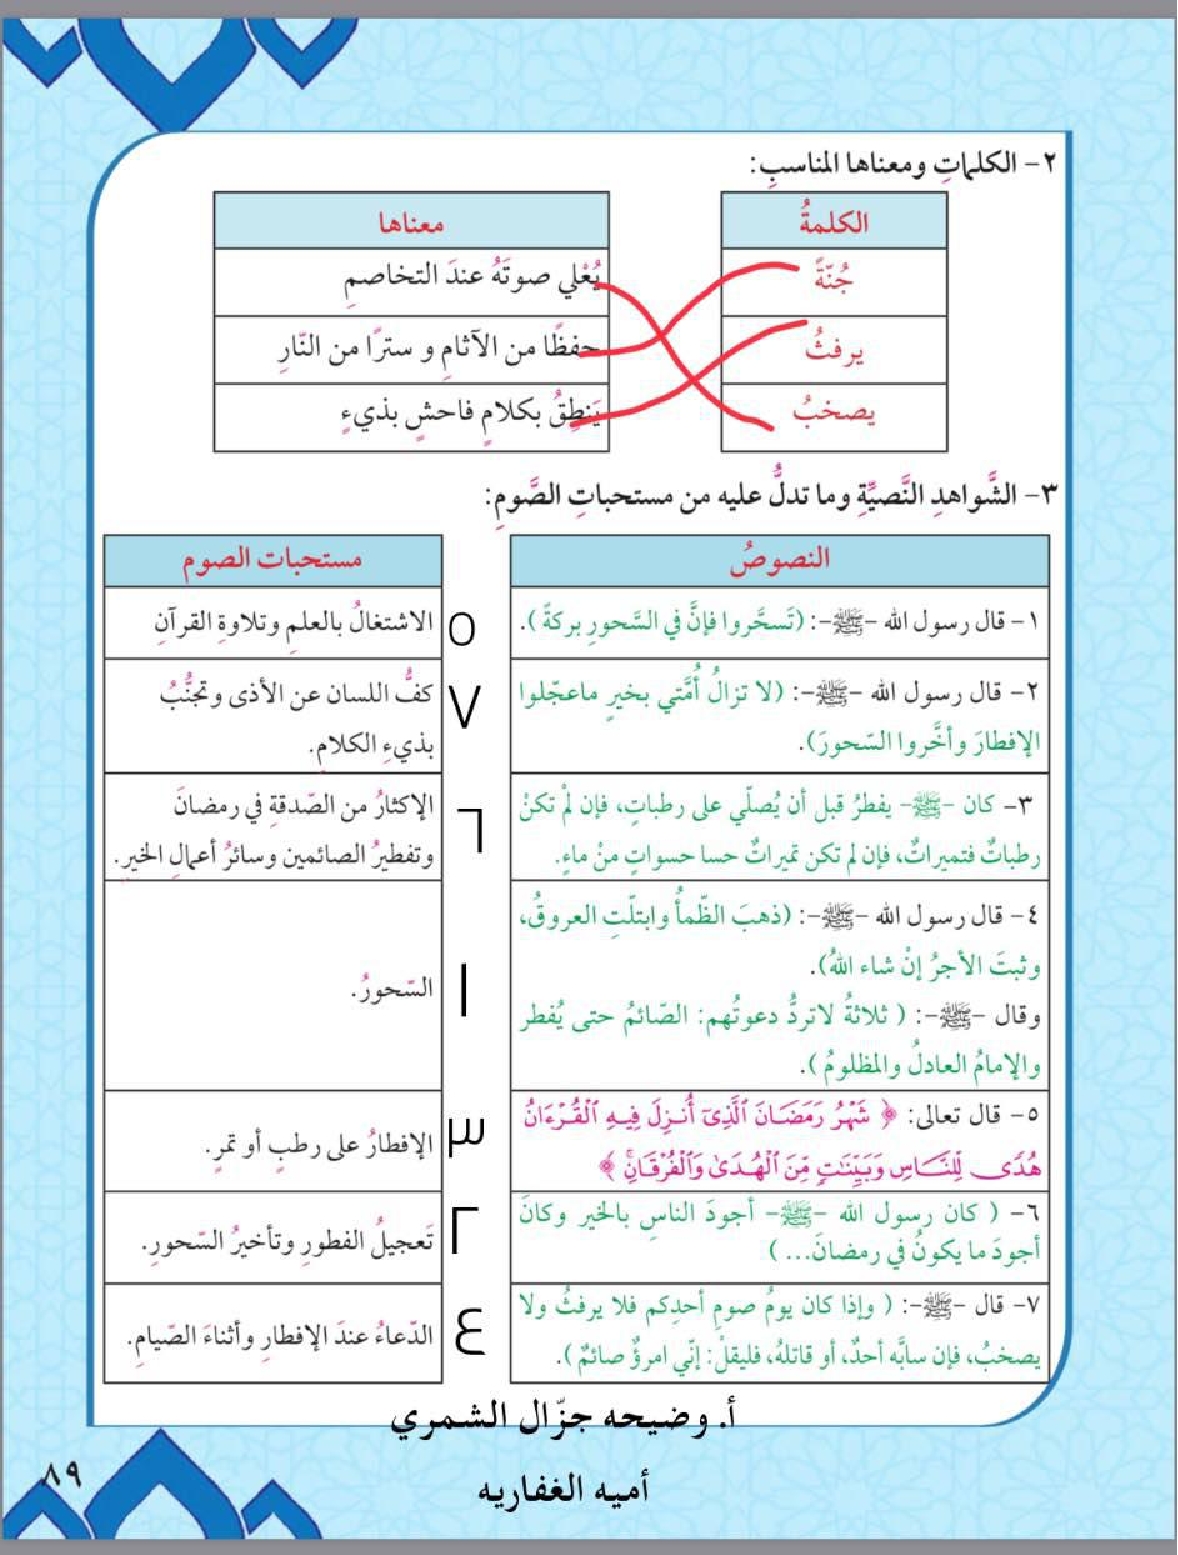 ٢- الكلماتِ ومعناها المناسبِ:
الكلمةُ
معناها
جُنّةً
يُعْلي صوتَهُ عندَ التخاصمِ
يرفثُ
حفظًا من الآثامِ و سترًا من النّارِ
يصخبُ
يَنطِقُ بكلامٍ فاحشٍ بذيءٍ
٣- الشَّواهدِ النَّصيَّةِ وما تدلُّ عليه من مستحباتِ الصَّومِ:
النصوصُ
مستحبات الصوم
١- قال رسول الله -ﷺ-: (تَسحَّروا فإنَّ في السَّحورِ بركةً).
٥
الاشتغالُ بالعلمِ وتلاوةِ القرآنِ
٢- قال رسول الله -ﷺ-: (لا تزالُ أُمَّتي بخيرٍ ماعجّلوا
الإفطارَ وأخَّروا السّحورَ).
٧
كفُّ اللسان عن الأذى وتجنُّبُ
بذيءِ الكلامِ.
٣- كان -ﷺ- يفطرُ قبل أن يُصلّي على رطباتٍ، فإن لمْ تكنْ
رطباتٌ فتميراتٌ، فإن لم تكن تميراتٌ حسا حسواتٍ منْ ماءٍ.
٦
الإكثارُ من الصّدقةِ في رمضانَ
وتفطيرُ الصائمين وسائرُ أعمالِ الخيرِ.
٤- قال رسول الله -ﷺ-: (ذهبَ الظّمأُ وابتلّتِ العروقُ،
وثبتَ الأجرُ إنْ شاء اللهُ).
وقال -ﷺ-: ( ثلاثةُ لاتردُّ دعوتُهم: الصّائمُ حتى يُفطر
والإمامُ العادلُ والمظلومُ ).
١
السّحورُ.
٥- قال تعالى: ﴿ شَهْرُ رَمَضَانَ ٱلَّذِىٓ أُنزِلَ فِيهِ ٱلْقُرْءَانُ
هُدًى لِّلنَّاسِ وَبَيِّنَٰتٍ مِّنَ ٱلْهُدَىٰ وَٱلْفُرْقَانِ ﴾
٣
الإفطارُ على رطبٍ أو تمرٍ.
٦- ( كان رسول الله -ﷺ- أجودَ الناسِ بالخير وكانَ
أجودَ ما يكونُ في رمضانَ... )
٢
تَعجيلُ الفطورِ وتأخيرُ السّحورِ.
٧- قال -ﷺ-: ( وإذا كان يومُ صومِ أحدِكم فلا يرفثُ ولا
يصخبُ، فإن سابَّه أحدٌ، أو قاتلهُ، فليقلْ: إنّي امرؤٌ صائمٌ ).
٤
الدّعاءُ عندَ الإفطارِ وأثناءَ الصّيامِ.
أ. وضيحه جزّال الشمري
أميه الغفاريه
٨٩